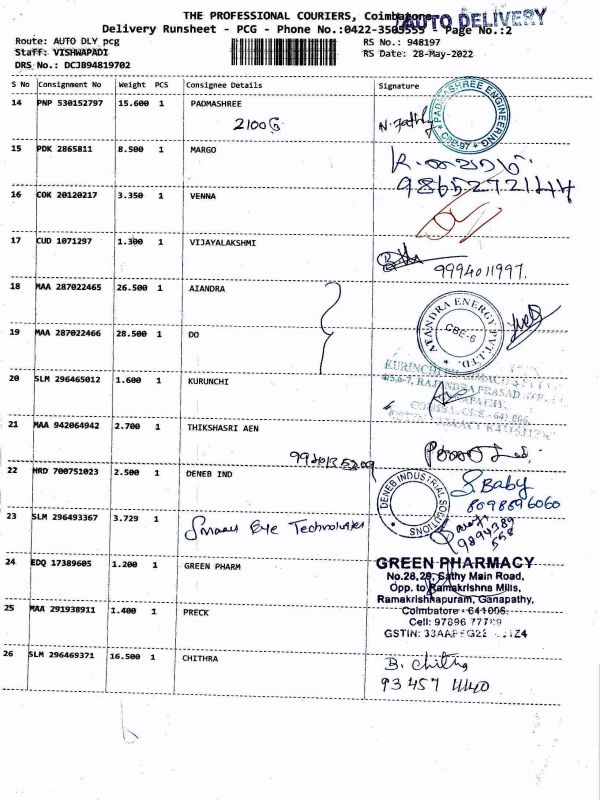 THE PROFESSIONAL COURIERS, Coimbatore
AUTO DELIVERY
Delivery Runsheet - PCG - Phone No.:0422-3505555 Page No.:2
Route: AUTO DLY pcg RS No.: 948197
Staff: VISHWAPADI RS Date: 28-May-2022
DRS No.: DCJB94819702
S No Consignment No Weight PCS Consignee Details Signature
14 PNP 530152797 15.600 1 PADMASHREE
PADMASHREE ENGINEERING
CBE-97
15 PDK 2865811 8.500 1 MARGO
9865272144
16 COK 20120217 3.350 1 VENNA
17 CUD 1071297 1.300 1 VIJAYALAKSHMI
9994011997.
18 MAA 287022465 26.500 1 AIANDRA
ATANDRA ENERGY PVT. LTD
CBE-6
19 MAA 287022466 28.500 1 DO
20 SLM 296465012 1.600 1 KURUNCHI
21 MAA 942064942 2.700 1 THIKSHASRI AEN
22 HRD 700751023 2.500 1 DENEB IND
DENEB INDUSTRIAL SOLUTIONS
S. Baby
8098896060
23 SLM 296493367 3.729 1 Smaas Eye Technologies
9894389
558
24 EDQ 17389605 1.200 1 GREEN PHARM
GREEN PHARMACY
No.28,29, Sathy Main Road,
Opp. to Ramakrishna Mills,
Ramakrishnapuram, Ganapathy,
Coimbatore - 641006.
Cell: 97896 77789
GSTIN:
25 MAA 291938911 1.400 1 PRECK
26 SLM 296469371 16.500 1 CHITHRA
B. Chithra
93457